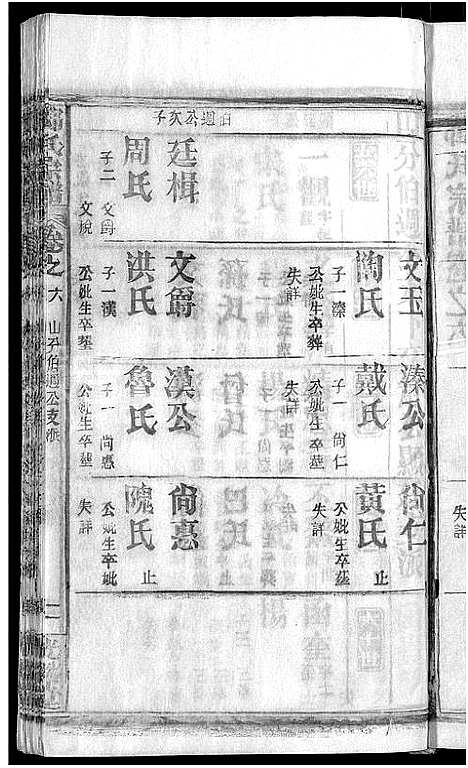 文玉
陶氏
子一溱
公妣生卒葬
失詳
溱公
戴氏
子一尚仁
公妣生卒塟
失詳
尙仁
黃氏 止
公妣生卒塟
失詳
伯週公次子
廷楫
周氏
子二 文爵
文悅
文爵
洪氏
子一漢
公妣生卒塟
失詳
漢公
魯氏
子一尚惠
公妣生卒塟
失詳
尙惠
隗氏 止
公妣生卒妣
失詳
之六 山分伯週公支派